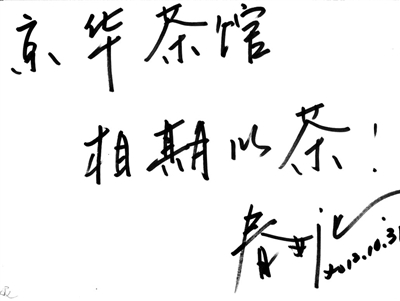 京华茶馆
相期以茶！
2012.10.31